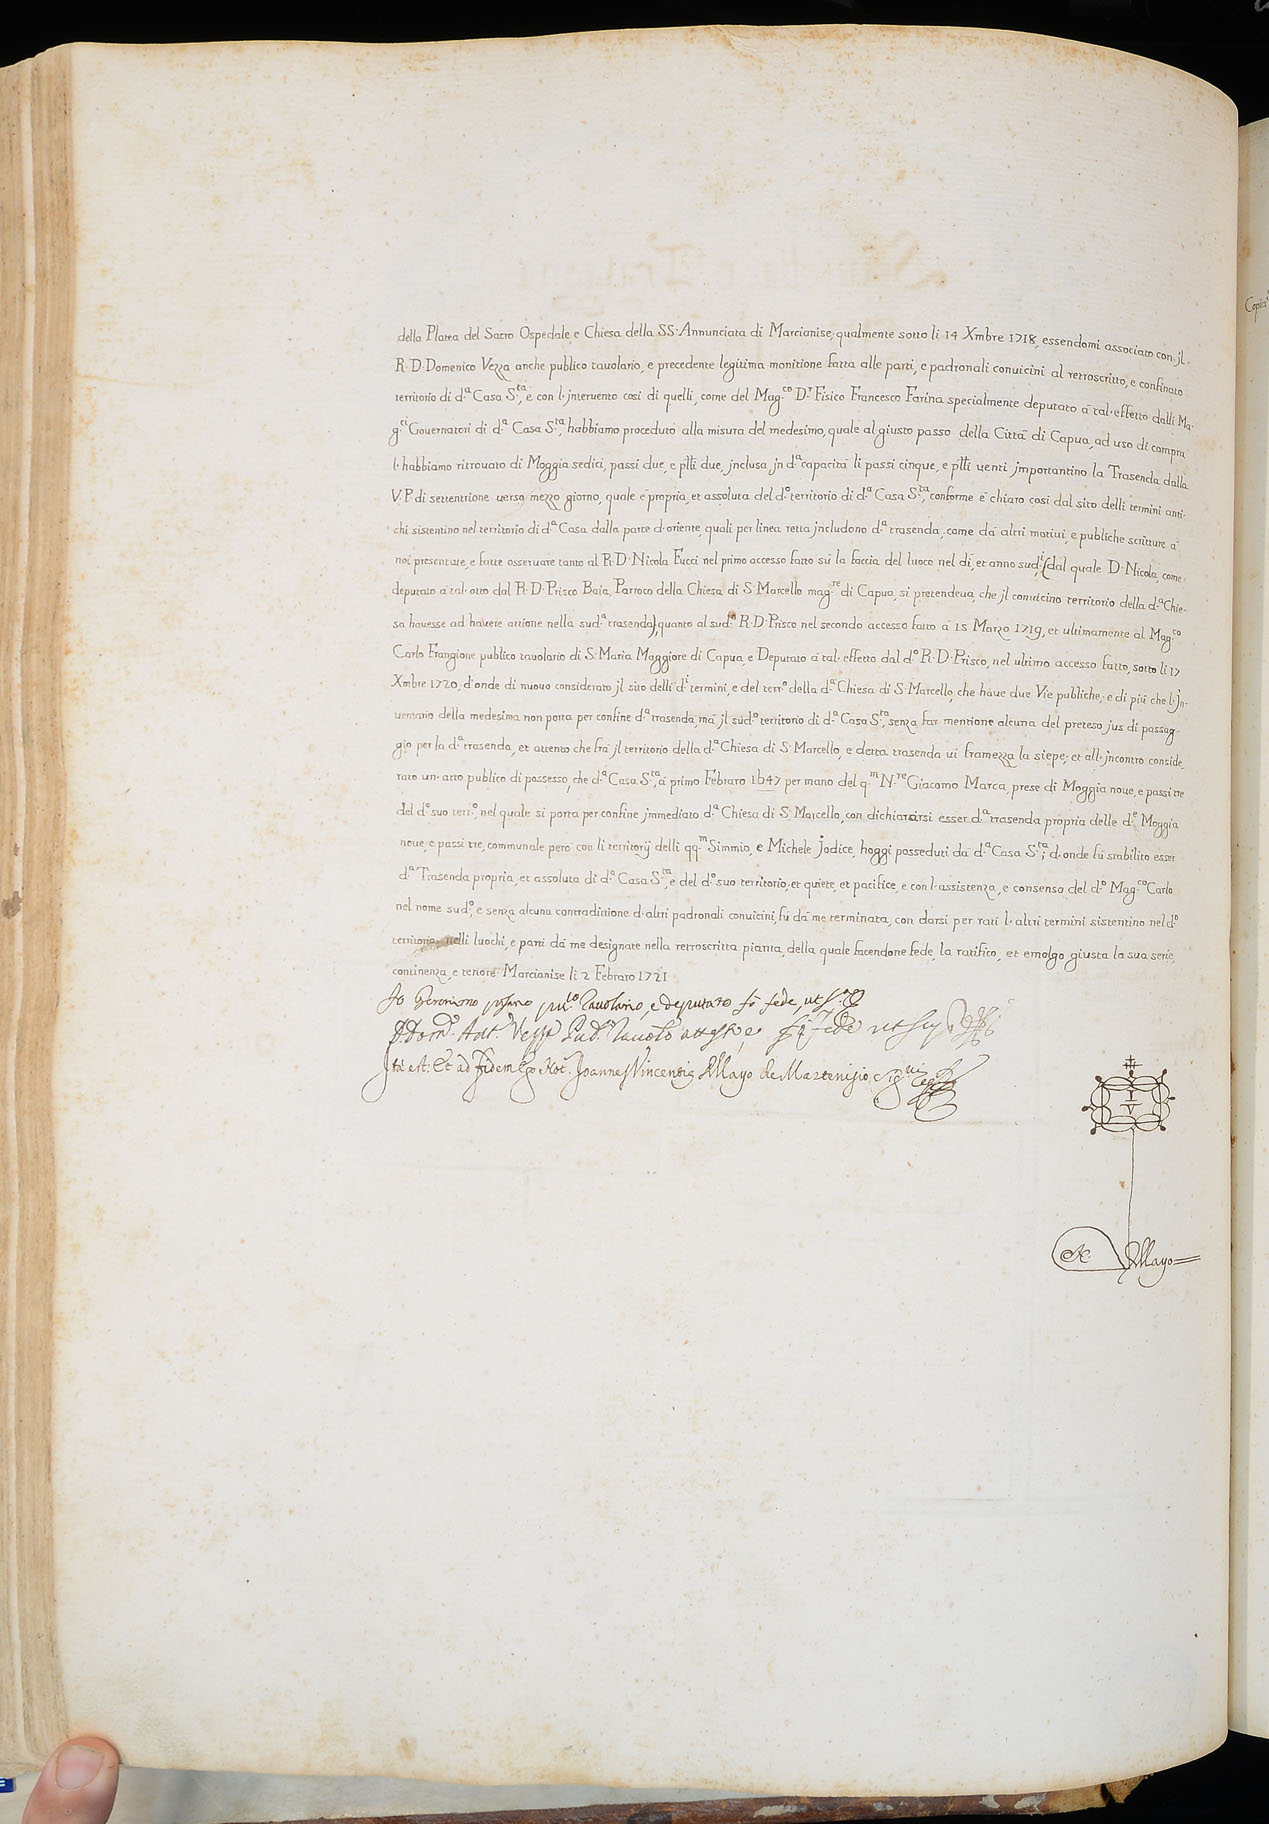 della Platea del Sacro Ospedale, e Chiesa della SS. Annunciata di Marcianise, qualmente sotto li 14 Xmbre 1718, essendomi associato con jl
R. D. Domenico Vezza anche publico tavolario, e precedente legitima monitione fatta alle parti, e padronali convicini al retroscritto, e confinato
territorio di d.ª Casa S.ta, e con l'intervento così di quelli, come del Mag.co D.r Fisico Francesco Farina specialmente deputato à tal'effetto dalli Ma-
g.ci Governatori di d.ª Casa S.ta, habbiamo proceduto alla misura del medesimo, quale al giusto passo della Città di Capua, ad uso di compra
l'habbiamo ritrovato di Moggia sedici, passi due, e p̃tti due, jnclusa jn d.ª capacità li passi cinque, e p̃tti venti jmportantino la Trasenda dalla
V.P. di settentrione verso mezzo giorno, quale è propria, et assoluta del d.º territorio di d.ª Casa S.ta, conforme è chiaro così dal sito delli termini anti-
chi sistentino nel territorio di d.ª Casa dalla parte d'oriente, quali per linea retta jncludono d.ª trasenda, come dà altri motivi, e publiche scritture à
noi presentate, e fatte osservare tanto al R. D. Nicola Fucci nel primo accesso fatto sù la faccia del luoco nel dì, et anno sud.i (dal quale D. Nicola, come
deputato à tal'atto dal R. D. Prisco Baia, Parroco della Chiesa di S. Marcello mag.re di Capua, si pretendeva, che jl convicino territorio della d.ª Chie-
sa havesse ad havere attione nella sud.ª trasenda), quanto al sud.º R. D. Prisco nel secondo accesso fatto à 15 Marzo 1719, et ultimamente al Mag.co
Carlo Frangione publico tavolario di S. Maria Maggiore di Capua, e Deputato à tal'effetto dal d.º R. D. Prisco, nel ultimo accesso fatto, sotto li 17
Xmbre 1720, d'onde di nuovo considerato jl sito delli d.i termini, e del terr.º della d.ª Chiesa di S. Marcello, che have due Vie publiche, e di più che l'Jn-
ventario della medesima non porta per confine d.ª trasenda, mà jl sud.º territorio di d.ª Casa S.ta, senza far mentione alcuna del preteso jus di passag-
gio per la d.ª trasenda, et attento che frà jl territorio della d.ª Chiesa di S. Marcello, e detta trasenda vi framezza la siepe; et all'jncontro conside-
rato un'atto publico di possesso, che d.ª Casa S.ta, à primo Febraro 1647 per mano del q.m N.re Giacomo Marca, prese di Moggia nove, e passi tre
del d.º suo terr.º, nel quale si porta per confine jmmediato d.ª Chiesa di S. Marcello, con dichiararsi esser d.ª trasenda propria delle d.e Moggia
nove, e passi tre, communale però con li territorij delli qq.m Simmio, e Michele Jodice, hoggi posseduti dà d.ª Casa S.ta; d'onde fù stabilito esser
d.ª Trasenda propria, et assoluta di d.ª Casa S.ta, e del d.º suo territorio, et quiete, et pacifice, e con l'assistenza, e consenso del d.º Mag.co Carlo
nel nome sud.º, e senza alcuna contradittione d'altri padronali convicini, fù dà me terminata, con darsi per rati l'altri termini sistentino nel d.º
territorio, nelli luochi, e parti dà me designate nella retroscritta pianta, della quale facendone fede, la ratifico, et emolgo giusta la sua serie,
continenza, e tenore. Marcianise li 2 Febraro 1721
Jo Geronimo pu.co Tavolario, e deputato fò fede, ut s.ª
D. Dom.º Ant.º Vezza Pub.º Tavol.º attesto, e fò fede ut sup.ª
Jta est. Et ad fidem Ego Not. Joannes Vincentius Mayo de Martenisio, Sig.vi Reg.s
I
V
N. Mayo
Copia